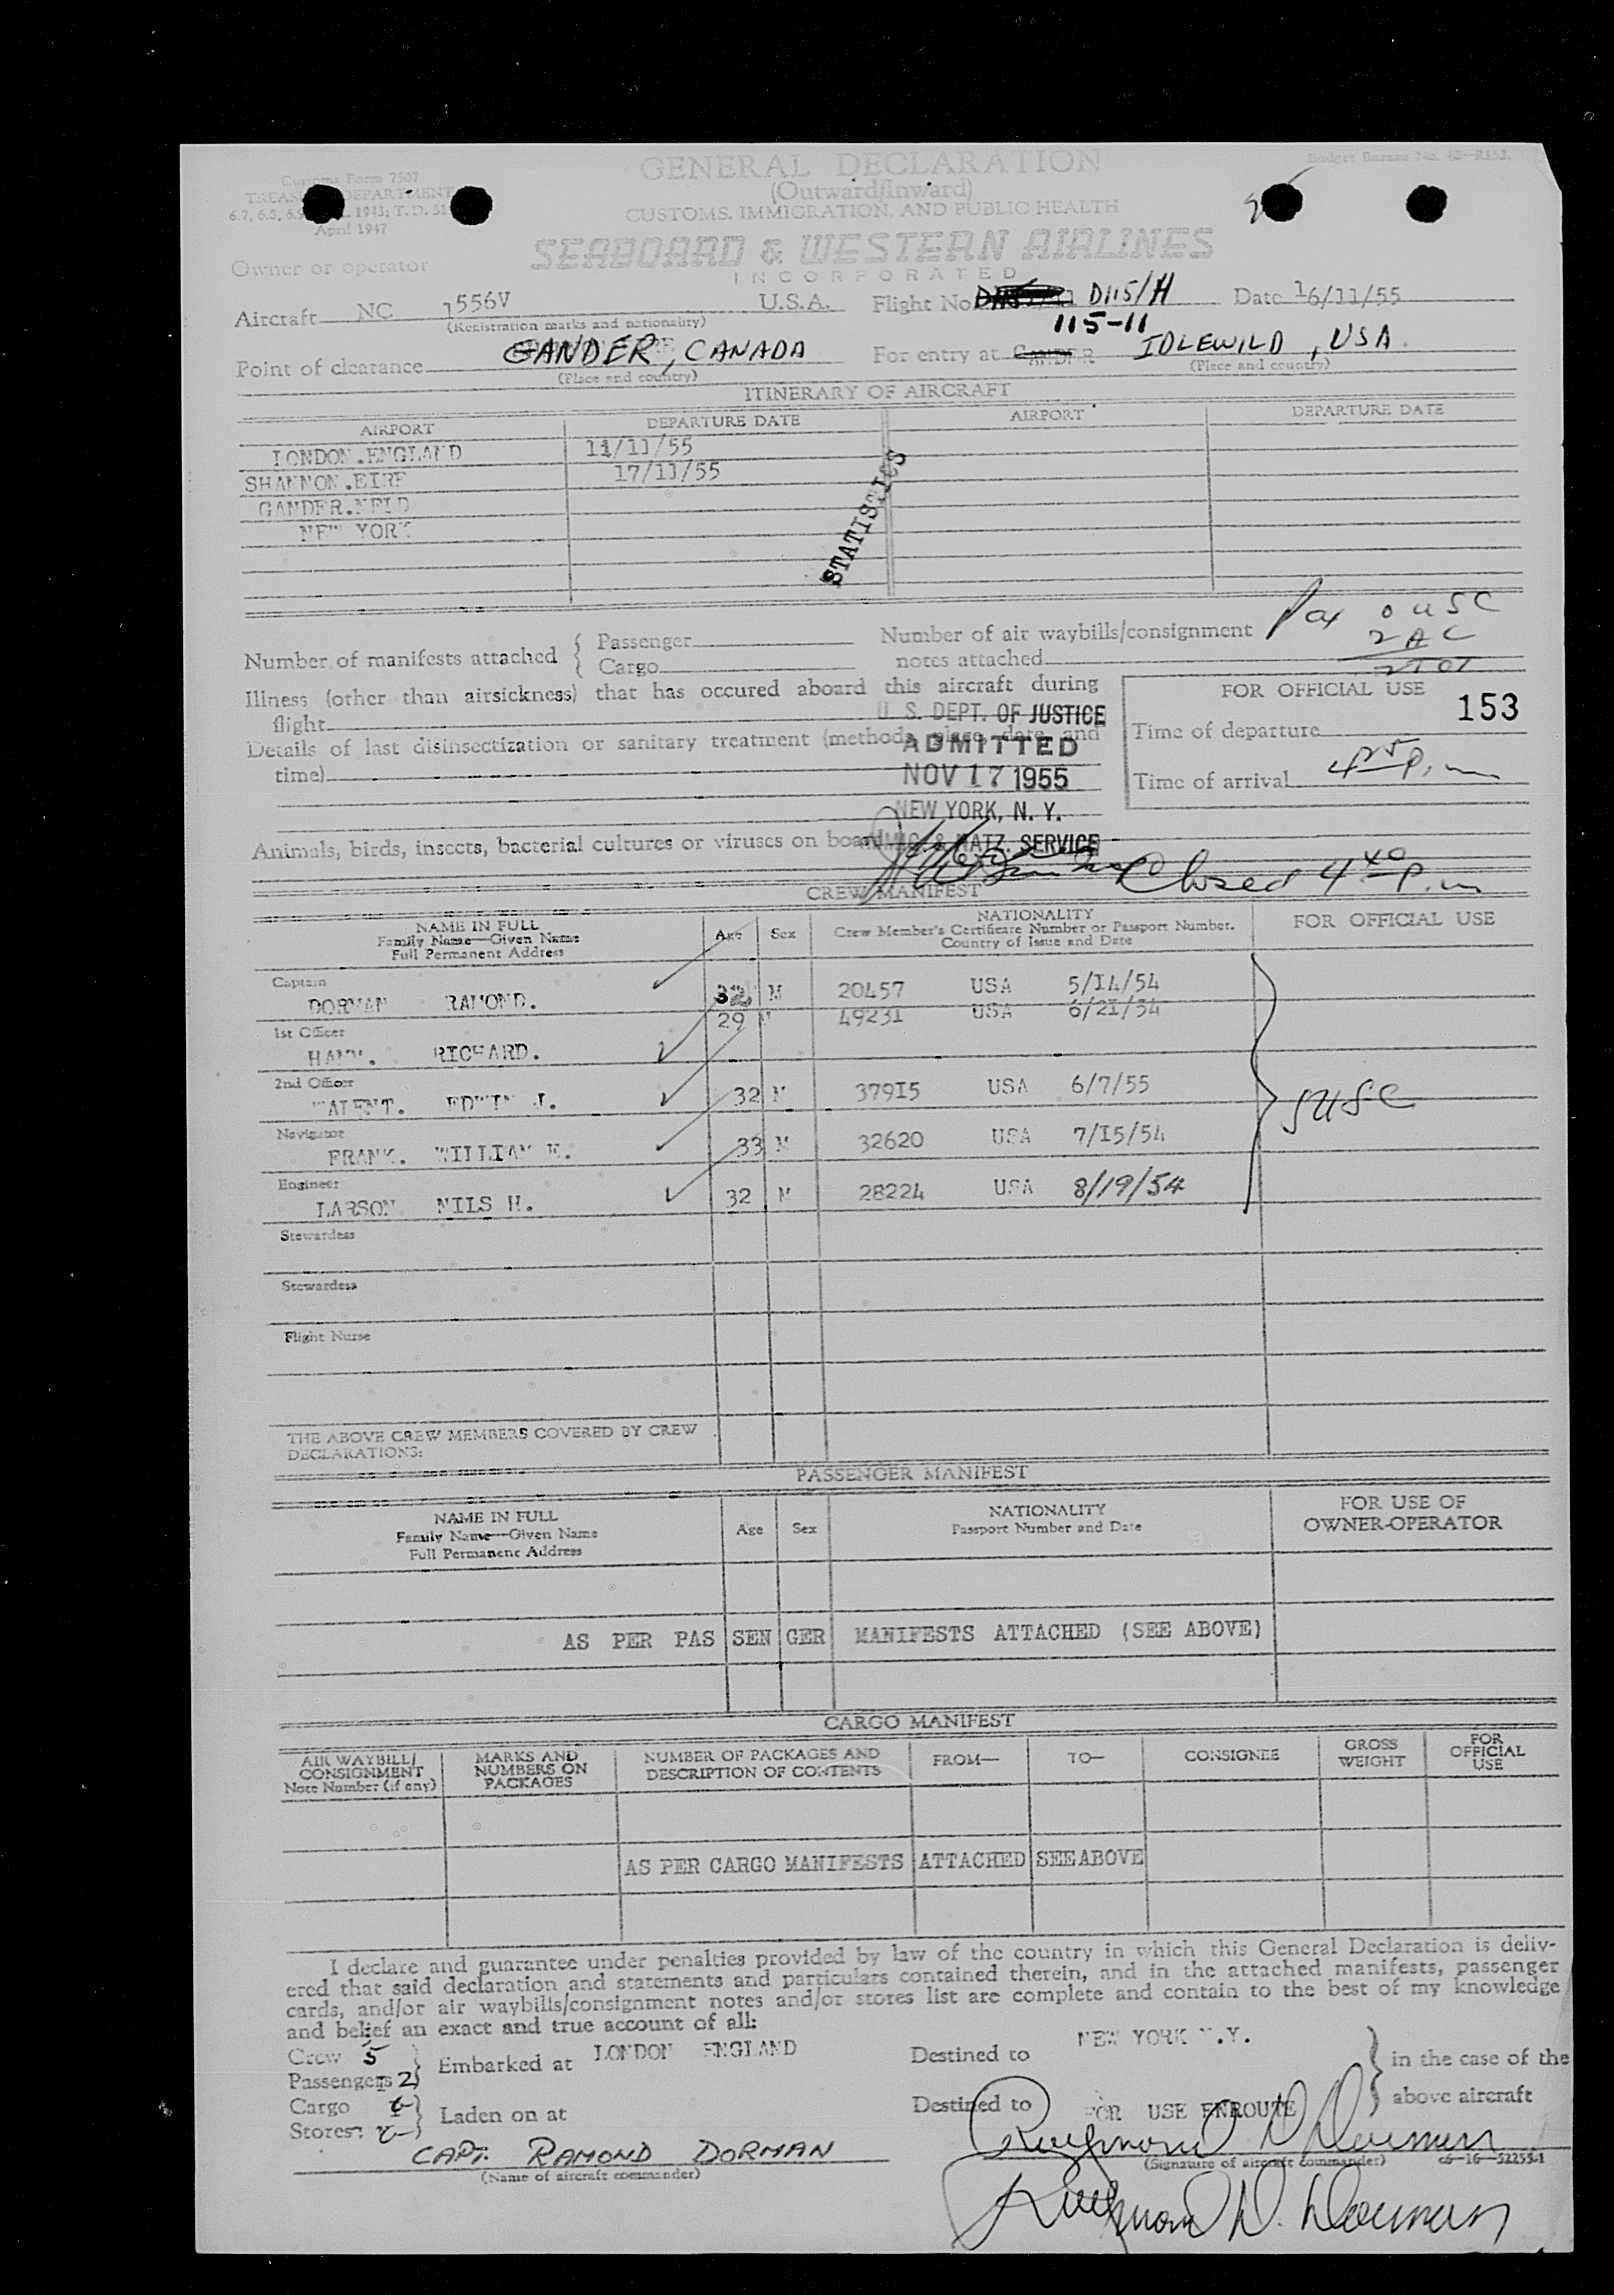 Customs Form 7507
TREASURY DEPARTMENT
April 1947
GENERAL DECLARATION
(Outward/Inward)
CUSTOMS, IMMIGRATION, AND PUBLIC HEALTH
Budget Bureau No.
SEABOARD & WESTERN AIRLINES
INCORPORATED
Owner or operator
Aircraft NC 1556V U.S.A. Flight No. D115/H Date 16/11/55
(Registration marks and nationality)
115-11
Point of clearance GANDER, CANADA For entry at GANDER IDLEWILD, USA.
(Place and country) (Place and country)
ITINERARY OF AIRCRAFT
AIRPORT DEPARTURE DATE AIRPORT DEPARTURE DATE
LONDON.ENGLAND 11/11/55
SHANNON.EIRE 17/11/55
GANDER.NFLD
NEW YORK
STATISTICS
Pax 0 USC
2 AC
2 TOT
Number of manifests attached { Passenger Number of air waybills/consignment
Cargo notes attached
Illness (other than airsickness) that has occured aboard this aircraft during
flight
Details of last disinsectization or sanitary treatment (method, place, date and
time)
FOR OFFICIAL USE
153
Time of departure
Time of arrival 4 25 P.m
U. S. DEPT. OF JUSTICE
ADMITTED
NOV 17 1955
NEW YORK, N. Y.
IMMIG. & NATZ. SERVICE
Animals, birds, insects, bacterial cultures or viruses on board
Closed 4 40 P.m
CREW MANIFEST
NAME IN FULL
Family Name—Given Name
Full Permanent Address
Age Sex
NATIONALITY
Crew Member's Certificate Number or Passport Number.
Country of Issue and Date
FOR OFFICIAL USE
Captain
DORMAN RAMOND. 32 M 20457 USA 5/I4/54
1st Officer 29 M 49231 USA 6/2I/54
RICHARD.
2nd Officer
EDWIN J. 32 M 379I5 USA 6/7/55
Navigator
FRANK. WILLIAM 33 M 32620 USA 7/I5/54
Engineer
LARSON NILS H. 32 M 28224 USA 8/19/54
5USC
Stewardess
Stewardess
Flight Nurse
THE ABOVE CREW MEMBERS COVERED BY CREW
DECLARATIONS:
PASSENGER MANIFEST
NAME IN FULL
Family Name—Given Name
Full Permanent Address
Age Sex
NATIONALITY
Passport Number and Date
FOR USE OF
OWNER-OPERATOR
AS PER PAS SEN GER MANIFESTS ATTACHED (SEE ABOVE)
CARGO MANIFEST
AIR WAYBILL/
CONSIGNMENT
Note Number (if any)
MARKS AND
NUMBERS ON
PACKAGES
NUMBER OF PACKAGES AND
DESCRIPTION OF CONTENTS
FROM—
TO—
CONSIGNEE
GROSS
WEIGHT
FOR
OFFICIAL
USE
AS PER CARGO MANIFESTS ATTACHED SEE ABOVE
I declare and guarantee under penalties provided by law of the country in which this General Declaration is deliv-
ered that said declaration and statements and particulars contained therein, and in the attached manifests, passenger
cards, and/or air waybills/consignment notes and/or stores list are complete and contain to the best of my knowledge
and belief an exact and true account of all:
Crew 5 Embarked at LONDON ENGLAND Destined to NEW YORK N.Y. in the case of the
Passengers 2
Cargo Laden on at Destined to FOR USE ENROUTE above aircraft
Stores:
CAPT. RAMOND DORMAN Raymond D Dorman
(Name of aircraft commander) (Signature of aircraft commander)
Raymond D. Dorman